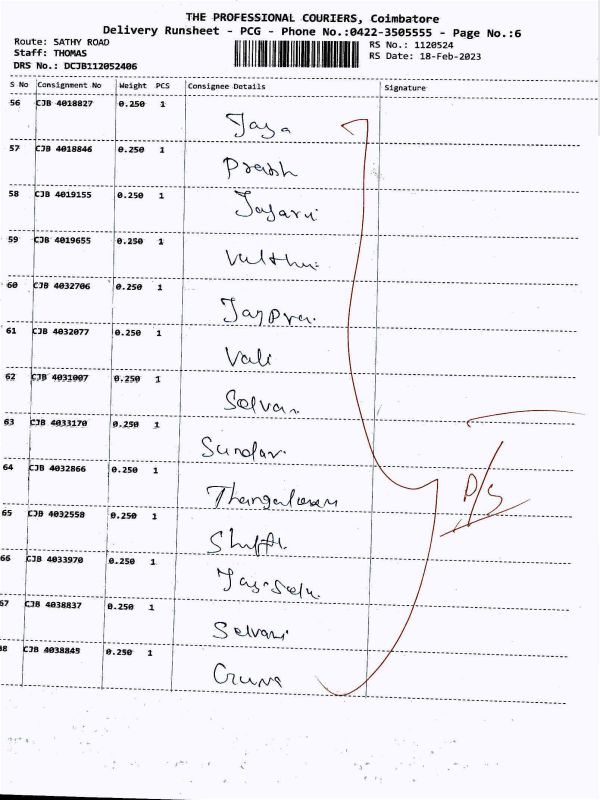 THE PROFESSIONAL COURIERS, Coimbatore
Delivery Runsheet - PCG - Phone No.:0422-3505555 - Page No.:6
Route: SATHY ROAD
Staff: THOMAS
DRS No.: DCJB112052406
RS No.: 1120524
RS Date: 18-Feb-2023
S No Consignment No Weight PCS Consignee Details Signature
56 CJB 4018827 0.250 1
Jaya
57 CJB 4018846 0.250 1
58 CJB 4019155 0.250 1
59 CJB 4019655 0.250 1
60 CJB 4032706 0.250 1
61 CJB 4032077 0.250 1
Vali
62 CJB 4031007 0.250 1
Selvan
63 CJB 4033170 0.250 1
Sundar
64 CJB 4032866 0.250 1
65 CJB 4032558 0.250 1
66 CJB 4033970 0.250 1
67 CJB 4038837 0.250 1
Selvani
68 CJB 4038845 0.250 1
Guna